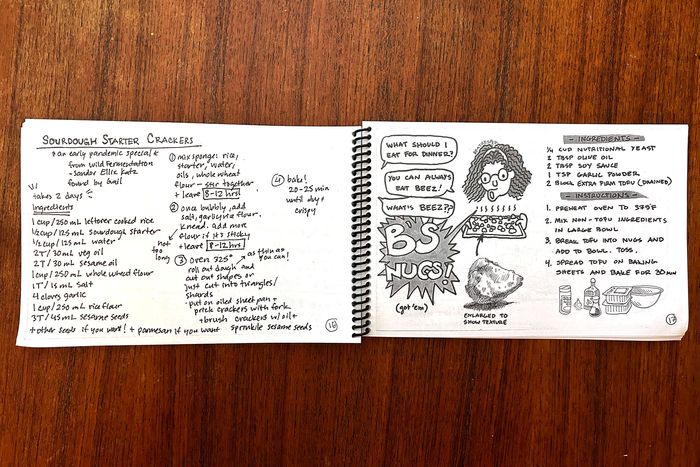 SOURDOUGH STARTER CRACKERS
* an early pandemic special *
from Wild Fermentation
- Sandor Ellix Katz
found by Gail
takes 2 days
Ingredients
1 cup/250 mL leftover cooked rice
1/2 cup/125 mL sourdough starter
1/2 cup/125 mL water
2T/30 mL veg oil
2T/30 mL sesame oil
1 cup/250 mL whole wheat flour
1T/15 mL salt
4 cloves garlic
1 cup/250 mL rice flour
3T/45 mL sesame seeds
+ other seeds if you want! + parmesan if you want
① mix sponge: rice,
starter, water,
oils, whole wheat
flour - stir together
+ leave 8-12 hrs
② once bubbly, add
salt, garlic, rice flour.
Knead. add more
flour if it's sticky
+ leave 8-12 hrs
not
too
long
③ Oven 325°
as thin as
you can!
roll out dough and
cut out shapes or
just cut into triangles/
shards
put on oiled sheet pan +
prick crackers with fork
+ brush crackers w/ oil +
sprinkle sesame seeds
④ bake!
20-25 min
until dry +
crispy
16
WHAT SHOULD I
EAT FOR DINNER?
YOU CAN ALWAYS
EAT BEEZ!
WHAT'S BEEZ??
BS
NUGS!
(got 'em)
ENLARGED TO
SHOW TEXTURE
- INGREDIENTS -
1/4 CUP NUTRITIONAL YEAST
2 TBSP OLIVE OIL
2 TBSP SOY SAUCE
1 TSP GARLIC POWDER
2 BLOCK EXTRA FIRM TOFU (DRAINED)
- INSTRUCTIONS -
1. PREHEAT OVEN TO
2. MIX NON-TOFU INGREDIENTS
IN LARGE BOWL.
3. BREAK TOFU INTO NUGS AND
ADD TO BOWL. TOSS.
4. SPREAD TOFU ON BAKING
SHEETS AND BAKE FOR 30 MIN
17